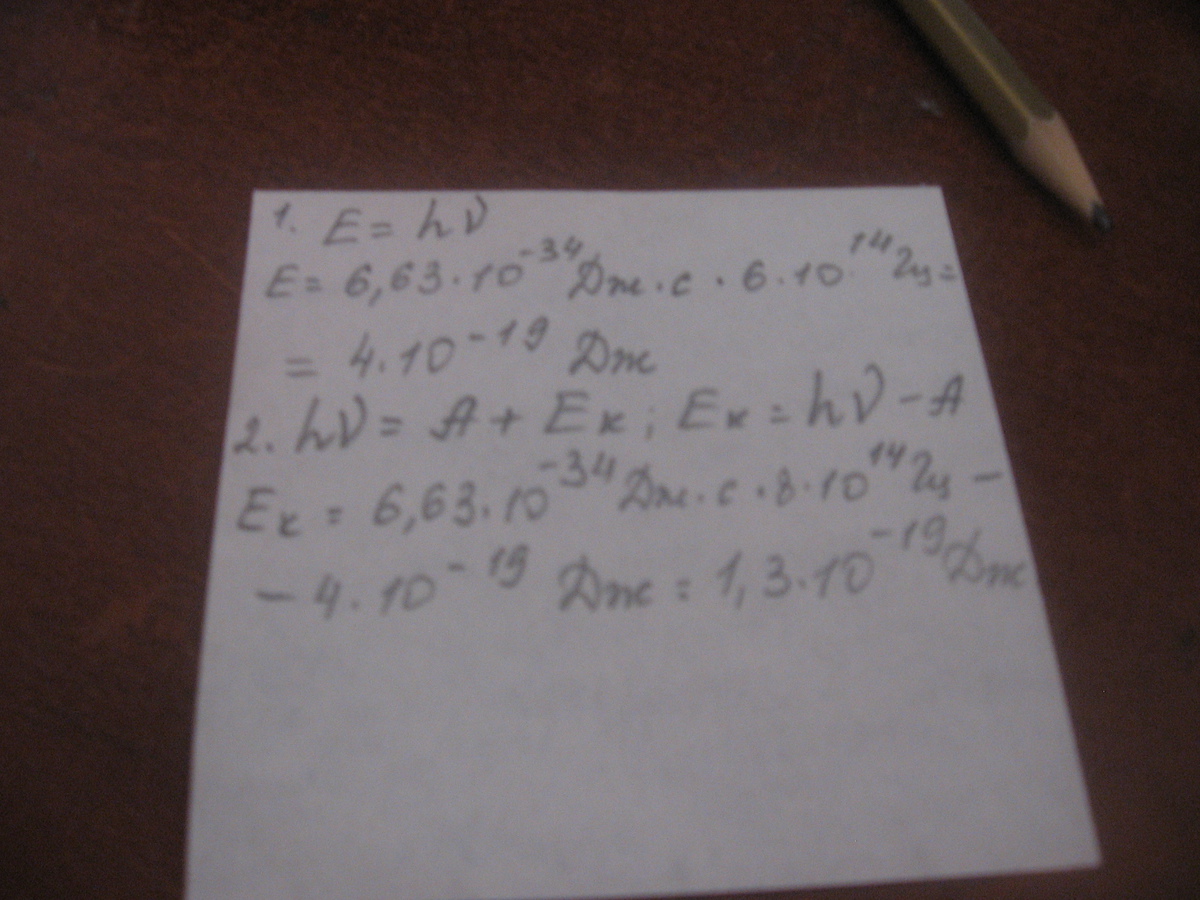 1. E = hν
E = 6,63·10⁻³⁴ Дж·с · 6·10¹⁴ Гц =
= 4·10⁻¹⁹ Дж
2. hν = A + Eк ; Eк = hν – A
Eк = 6,63·10⁻³⁴ Дж·с · 8·10¹⁴ Гц –
– 4·10⁻¹⁹ Дж = 1,3·10⁻¹⁹ Дж